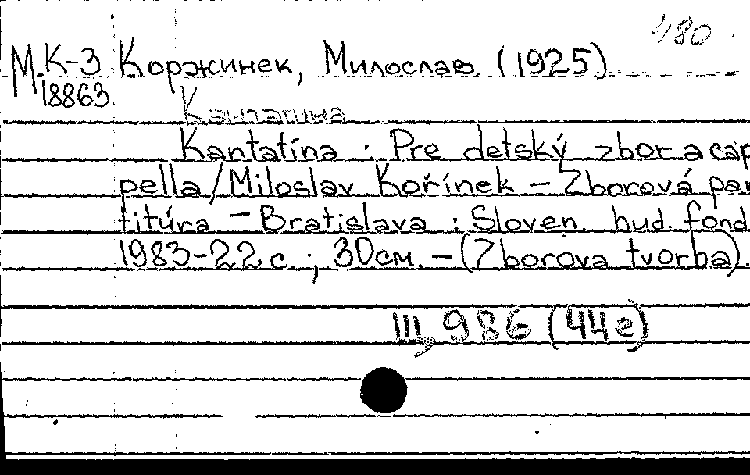 480.
М.К-3 Коржинек, Милослав (1925)
18863
Кантатина
Kantatína : Pre detský zbor a cap
pella / Miloslav Kořínek – Zborová par
titúra – Bratislava : Sloven. hud. fond
1983 – 22 с. ; 30 см. – (Zborova tvorba).
III, 986 (44г)